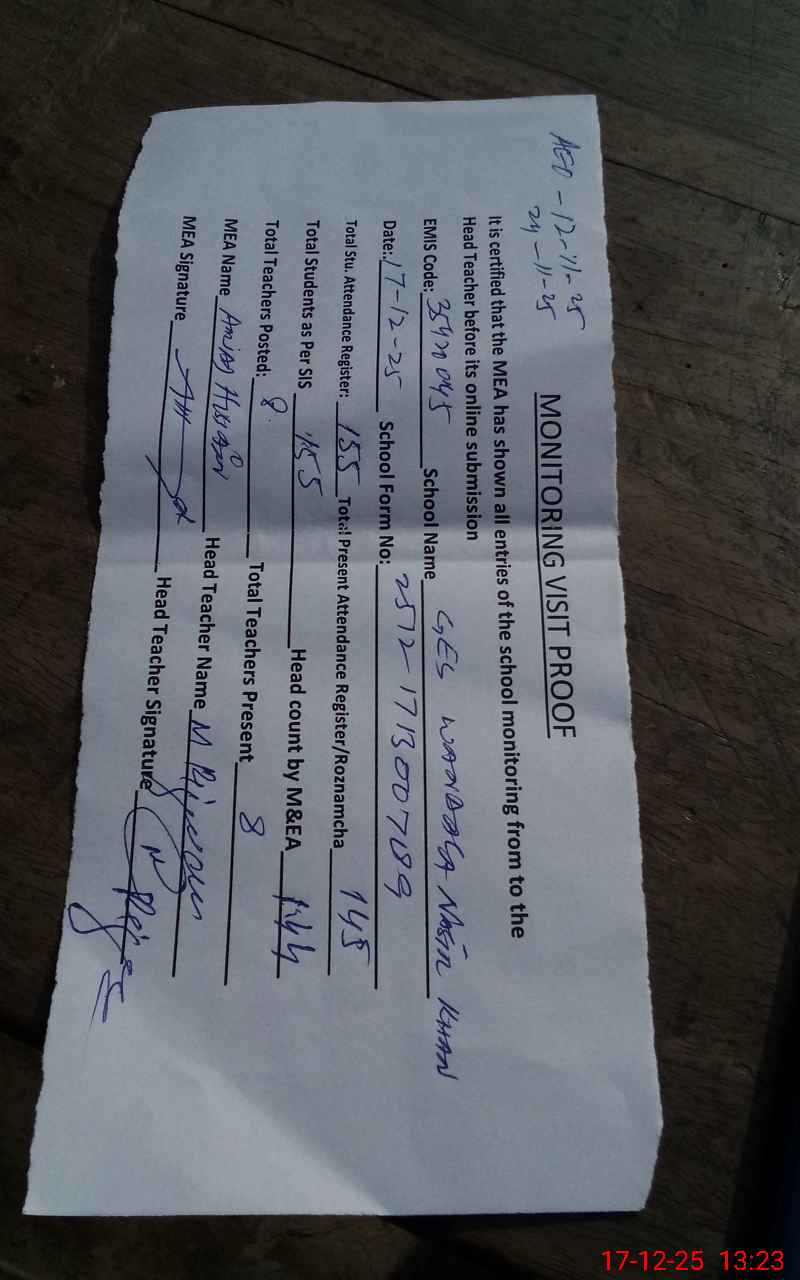 AEO - 12-11-25
24-11-25
MONITORING VISIT PROOF
It is certified that the MEA has shown all entries of the school monitoring from to the
Head Teacher before its online submission
EMIS Code: 35420045 School Name GES WANDALA NASIR KHAN
Date: 17-12-25 School Form No: 2512-1713007189
Total Stu. Attendance Register: 155 Total Present Attendance Register/Roznamcha 145
Total Students as Per SIS 155 Head count by M&EA 144
Total Teachers Posted: 8 Total Teachers Present 8
MEA Name Amjad Hussain Head Teacher Name M Rizwan
MEA Signature Head Teacher Signature
17-12-25 13:23